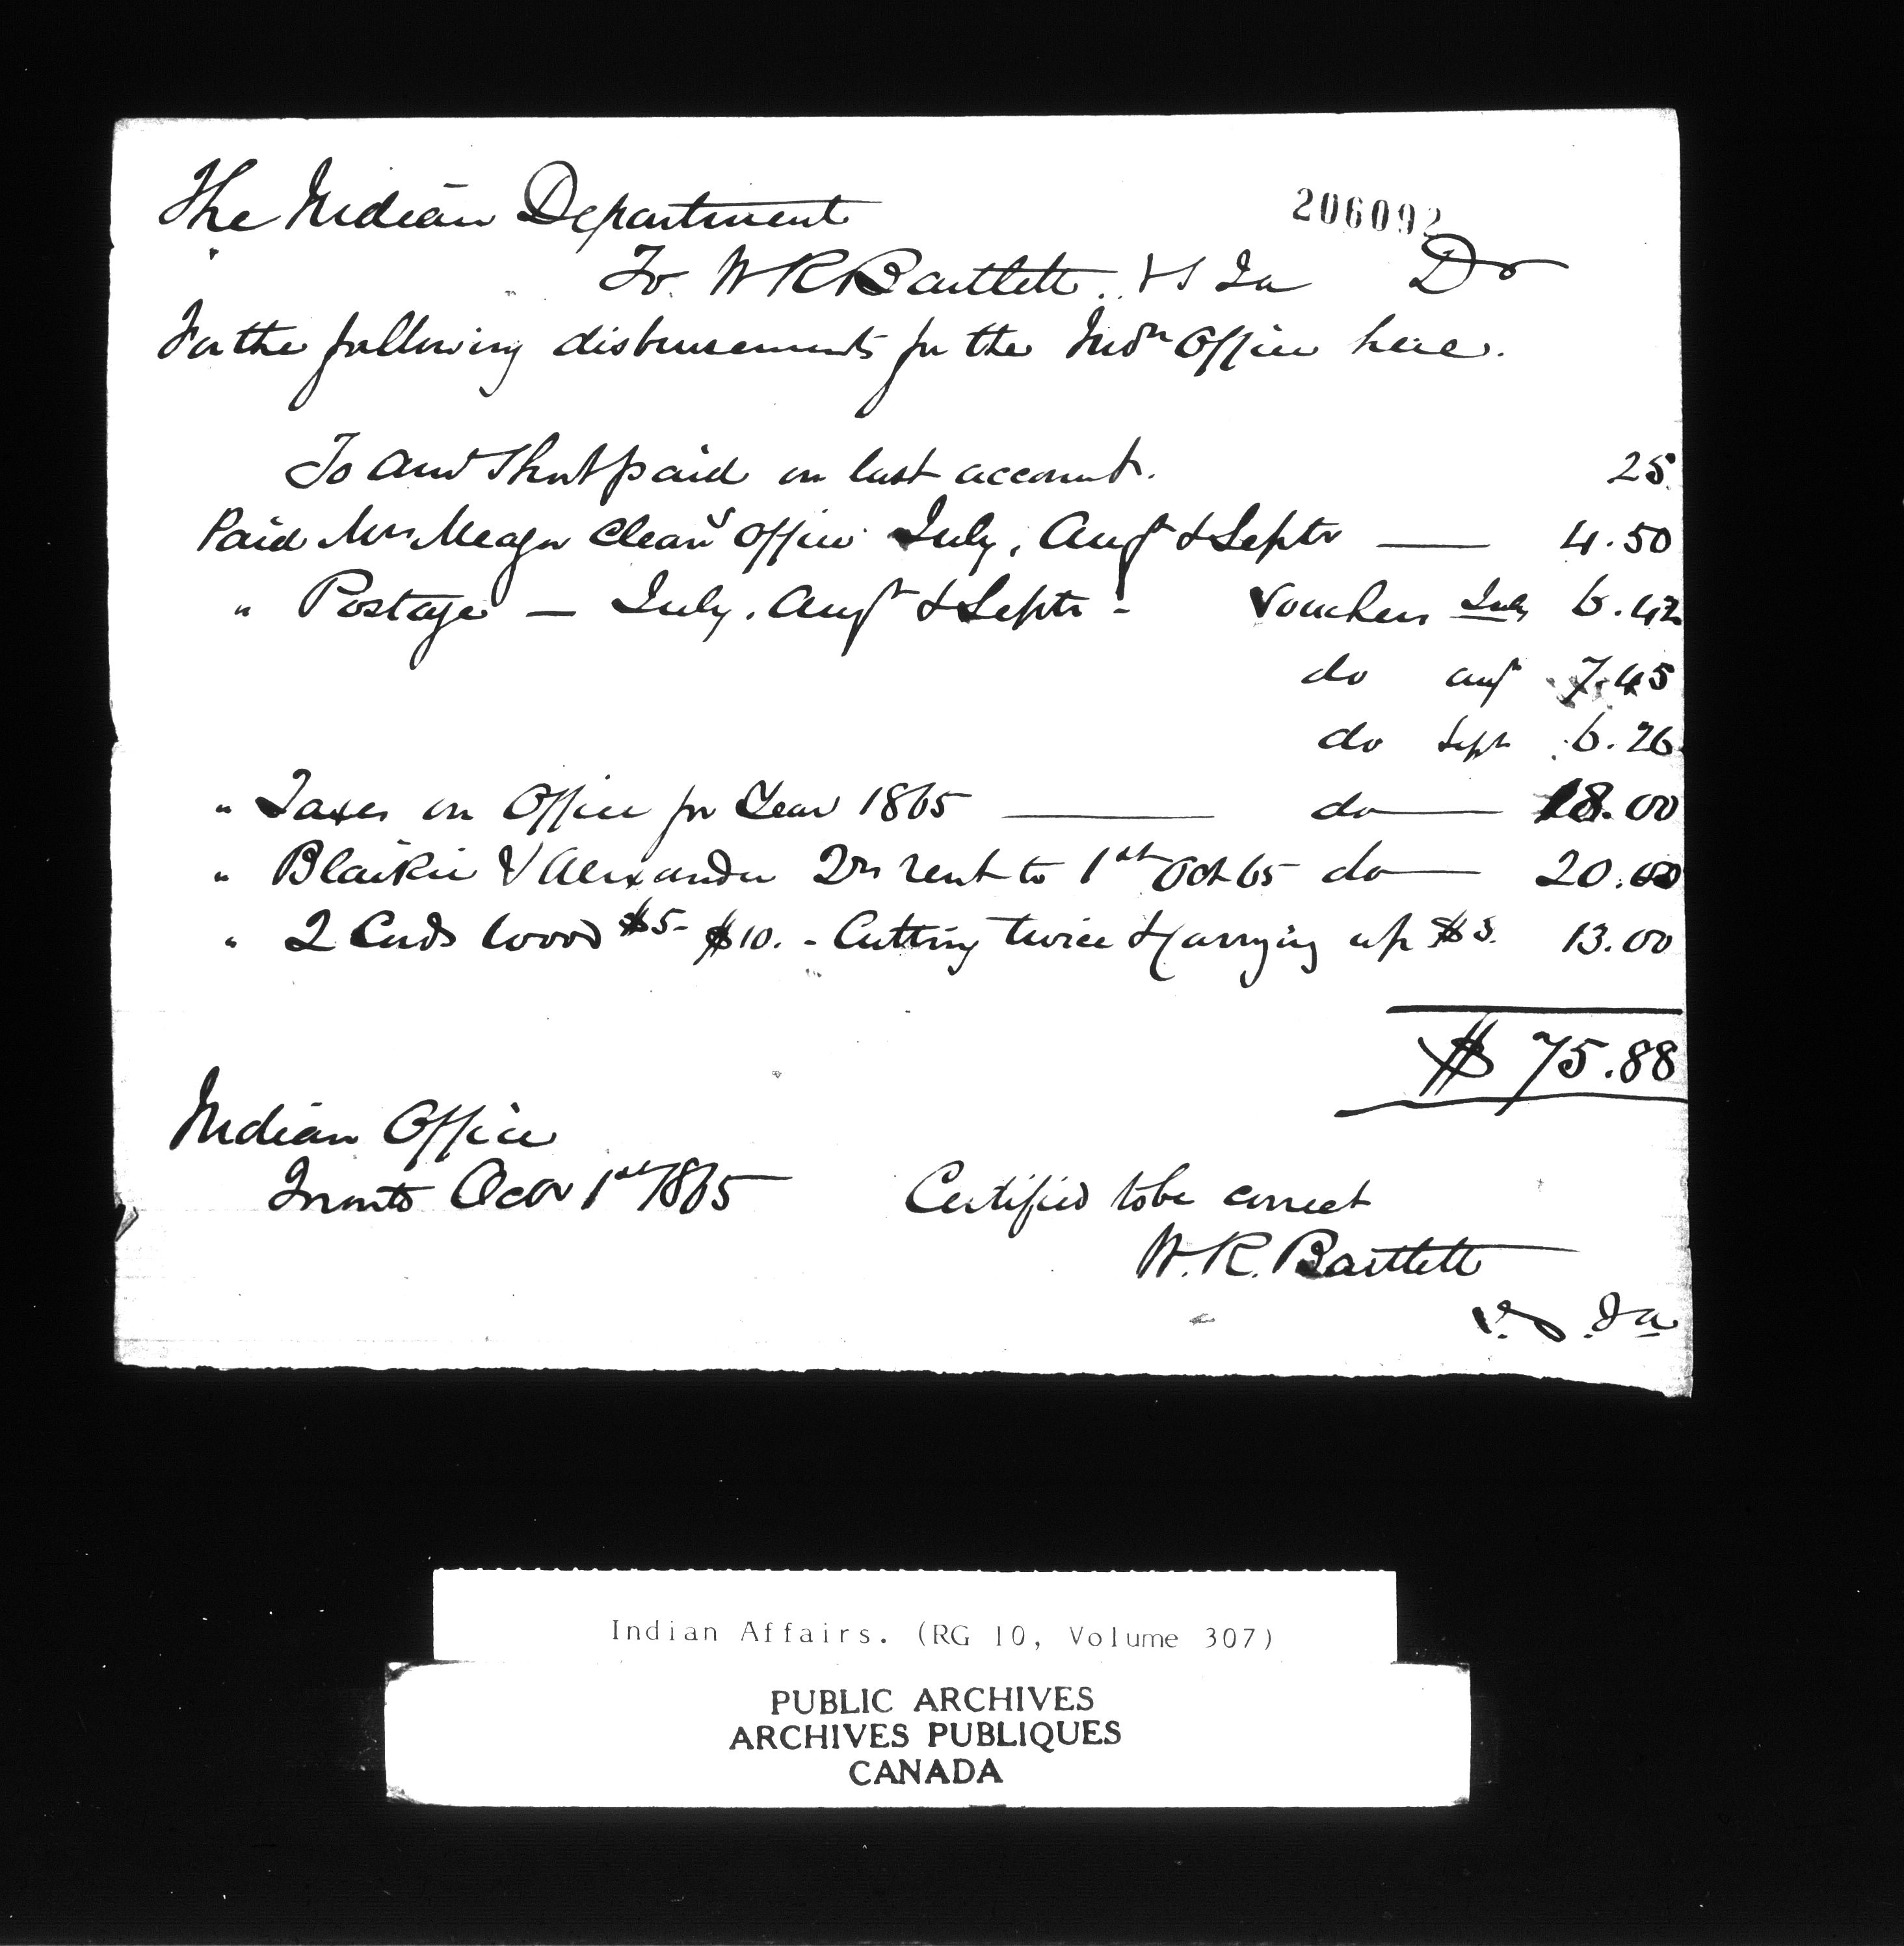 The Indian Department
206092
To W R Bartlett. V S I a Dr
For the following disbursements for the Indn Office here.
To amt Short paid on last account. 25
Paid Mrs Meagher Cleang Office July, Augt & Septr — 4.50
" Postage — July, Augt & Septr - Vouchers July 6.42
do augt 7.45
do Sept 6.26
" Taxes on Office for Year 1865 — do — 18.00
" Blaikie & Alexander Qrs rent to 1st Oct 65 do — 20.00
" 2 Cords Wood $5- $10. - Cutting twice & Carrying up $3. 13.00
$ 75.88
Indian Office
Toronto Octr 1st 1865
Certified to be correct
W. R. Bartlett
V. S. I a
Indian Affairs. (RG 10, Volume 307)
PUBLIC ARCHIVES
ARCHIVES PUBLIQUES
CANADA